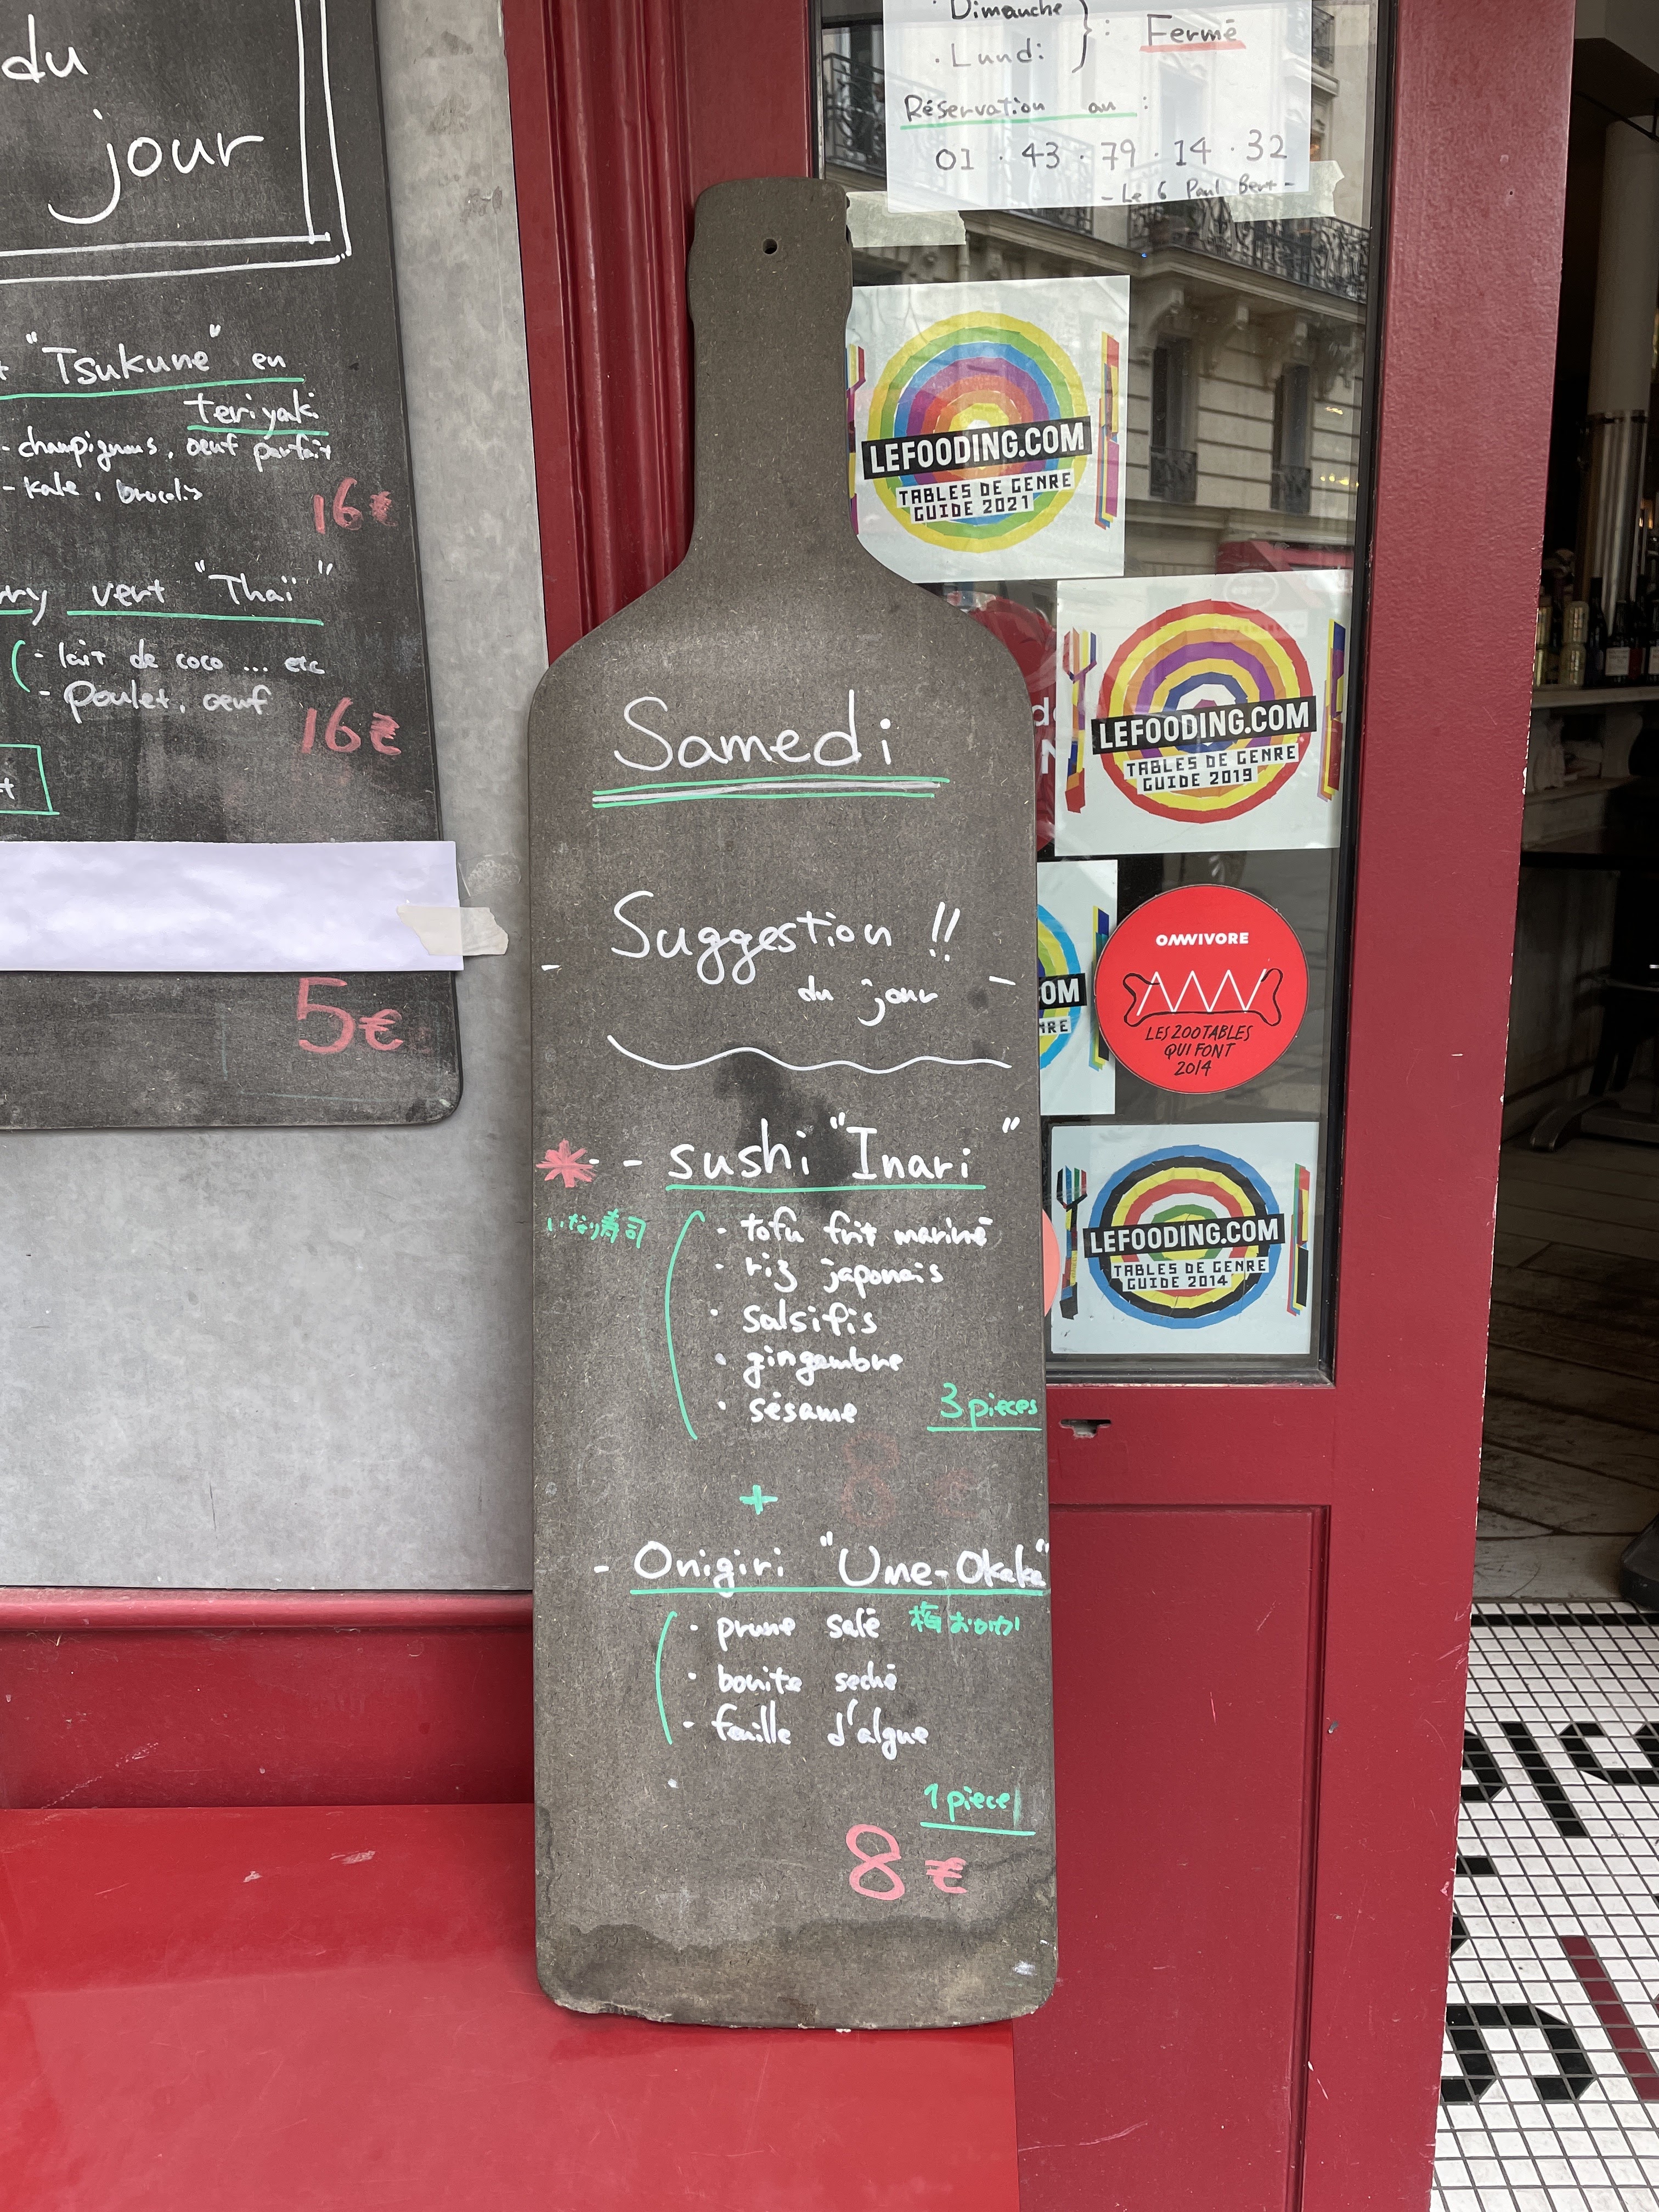 du
jour
"Tsukune" en
teriyaki
- champignons, oeuf parfait
- kale, brocolis
16€
vert "Thaï"
- lait de coco ... etc
- poulet, oeuf
16€
5€
· Dimanche
· Lundi
: Fermé
Réservation au :
01 · 43 · 79 · 14 · 32
- Le 6 Paul Bert -
LEFOODING.COM
TABLES DE GENRE
GUIDE 2021
LEFOODING.COM
TABLES DE GENRE
GUIDE 2019
OMNIVORE
LES 200 TABLES
QUI FONT
2014
LEFOODING.COM
TABLES DE GENRE
GUIDE 2014
Samedi
- Suggestion !! -
du jour
* - - sushi "Inari"
いなり寿司
· tofu frit mariné
· riz japonais
· salsifis
· gingembre
· sésame
3 pièces
8 €
+
- Onigiri "Ume-Okaka"
· prune salé 梅おかか
· bonite seché
- feuille d'algue
1 piece
8 €